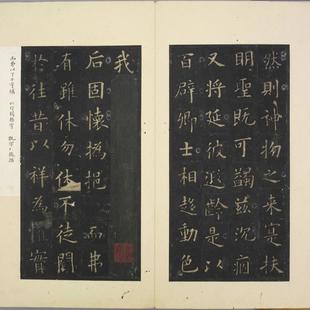 然則神物之来寔扶
明聖既可蠲兹沉痼
又将延彼遐齡是以
百辟卿士相趍動色
我
后固懷撝挹而弗
有雖休勿休不徒聞
於往昔以祥為懼實